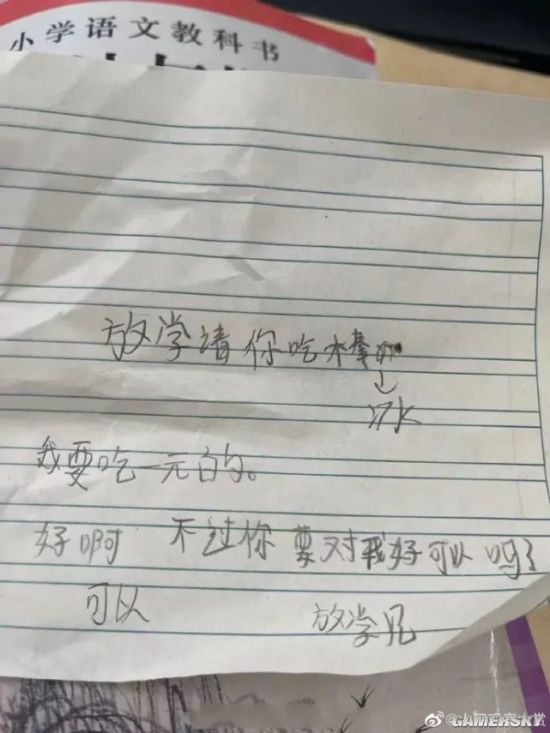 小学语文教科书
放学请你吃水棒
冰
我要吃一元的。
好啊 不过你要对我好可以吗？
可以 放学见
GAMERSKY